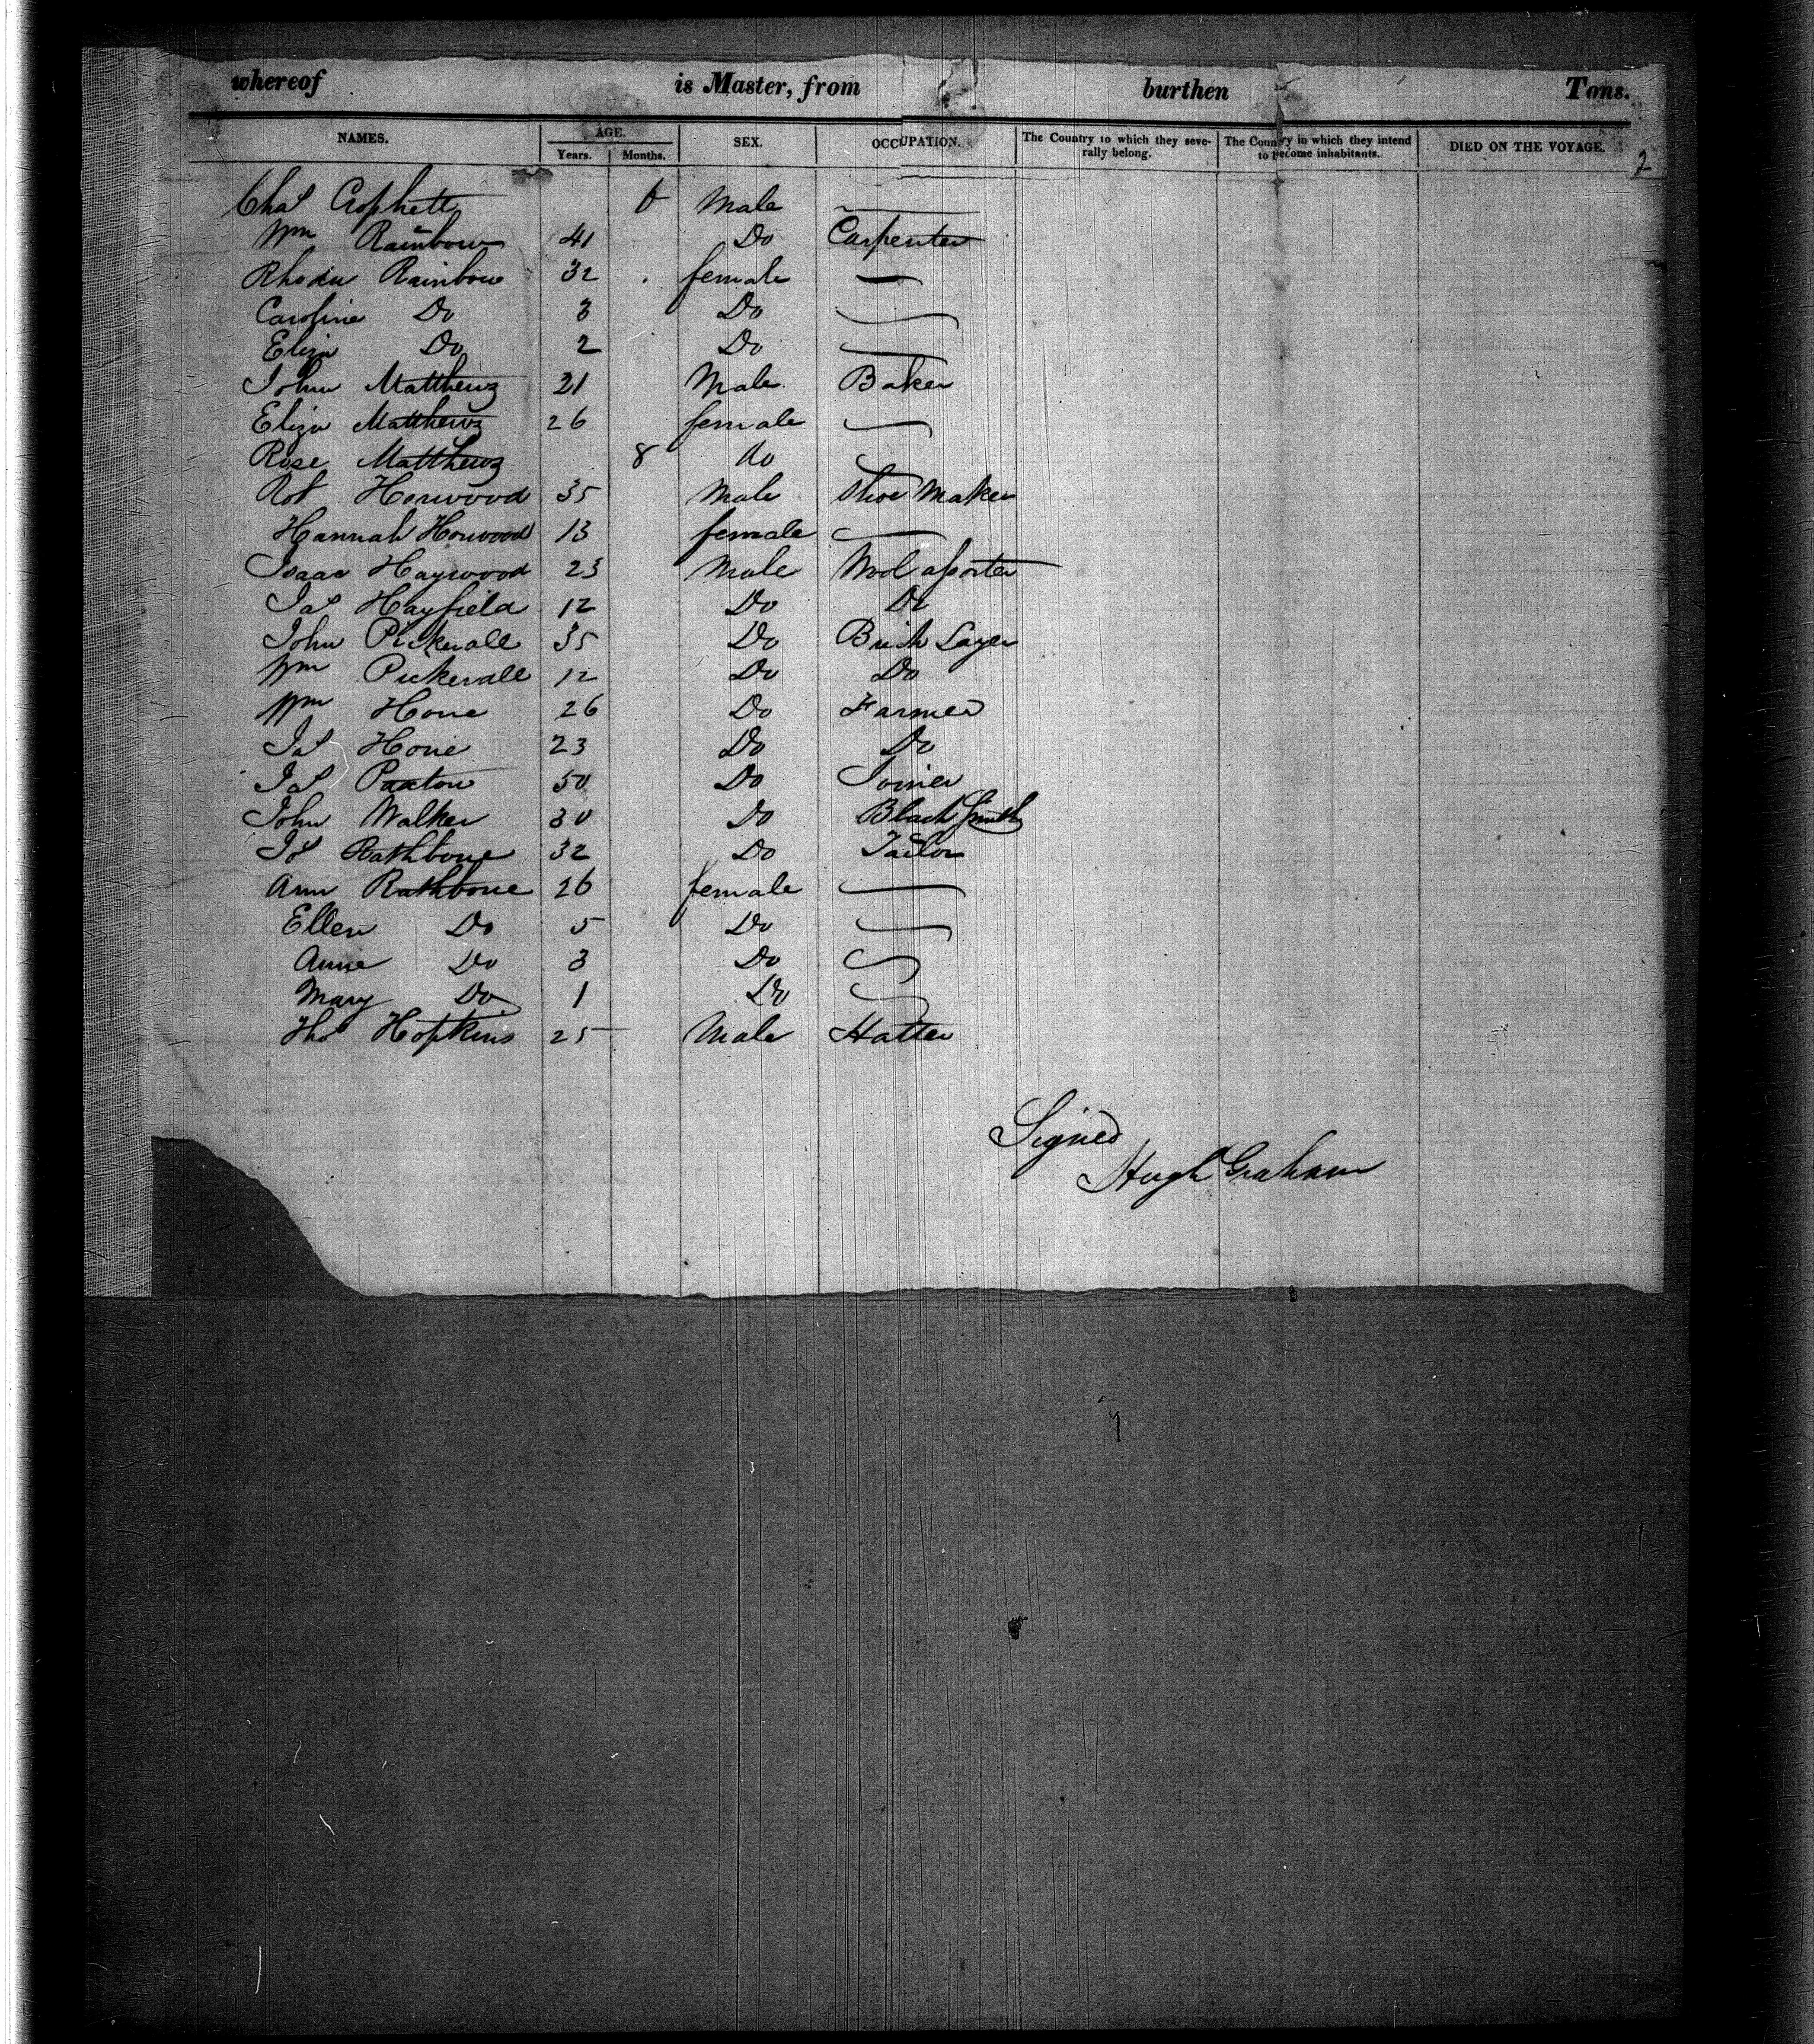 whereof is Master, from burthen Tons.
NAMES. AGE. SEX. OCCUPATION. The Country to which they seve- The Country in which they intend DIED ON THE VOYAGE. 2
Years. Months. rally belong. to become inhabitants.
Chas Crophett 6 Male
Wm Rainbow 41 Do Carpenter
Rhoda Rainbow 32 female —
Caroline Do 3 Do
Eliza Do 2 Do
John Matthews 21 Male Baker
Eliza Matthews 26 female
Rose Matthews 8 do
Rot Horwood 35 Male Shoe Maker
Hannah Horwood 13 female
Isaac Haywood 23 Male Wool assorter
Jas Hayfield 12 Do Do
John Pickerall 35 Do Brick Layer
Wm Pickerall 12 Do Do
Wm Hone 26 Do Farmer
Jas Hone 23 Do Do
Jas Paxton 50 Do Joiner
John Walker 30 Do Black Smith
Js Rathbone 32 Do Tailor
Ann Rathbone 26 female
Ellen Do 5 Do
Anne Do 3 Do
Mary Do 1 Do
Thos Hopkins 25 Male Hatter
Signed
Hugh Graham